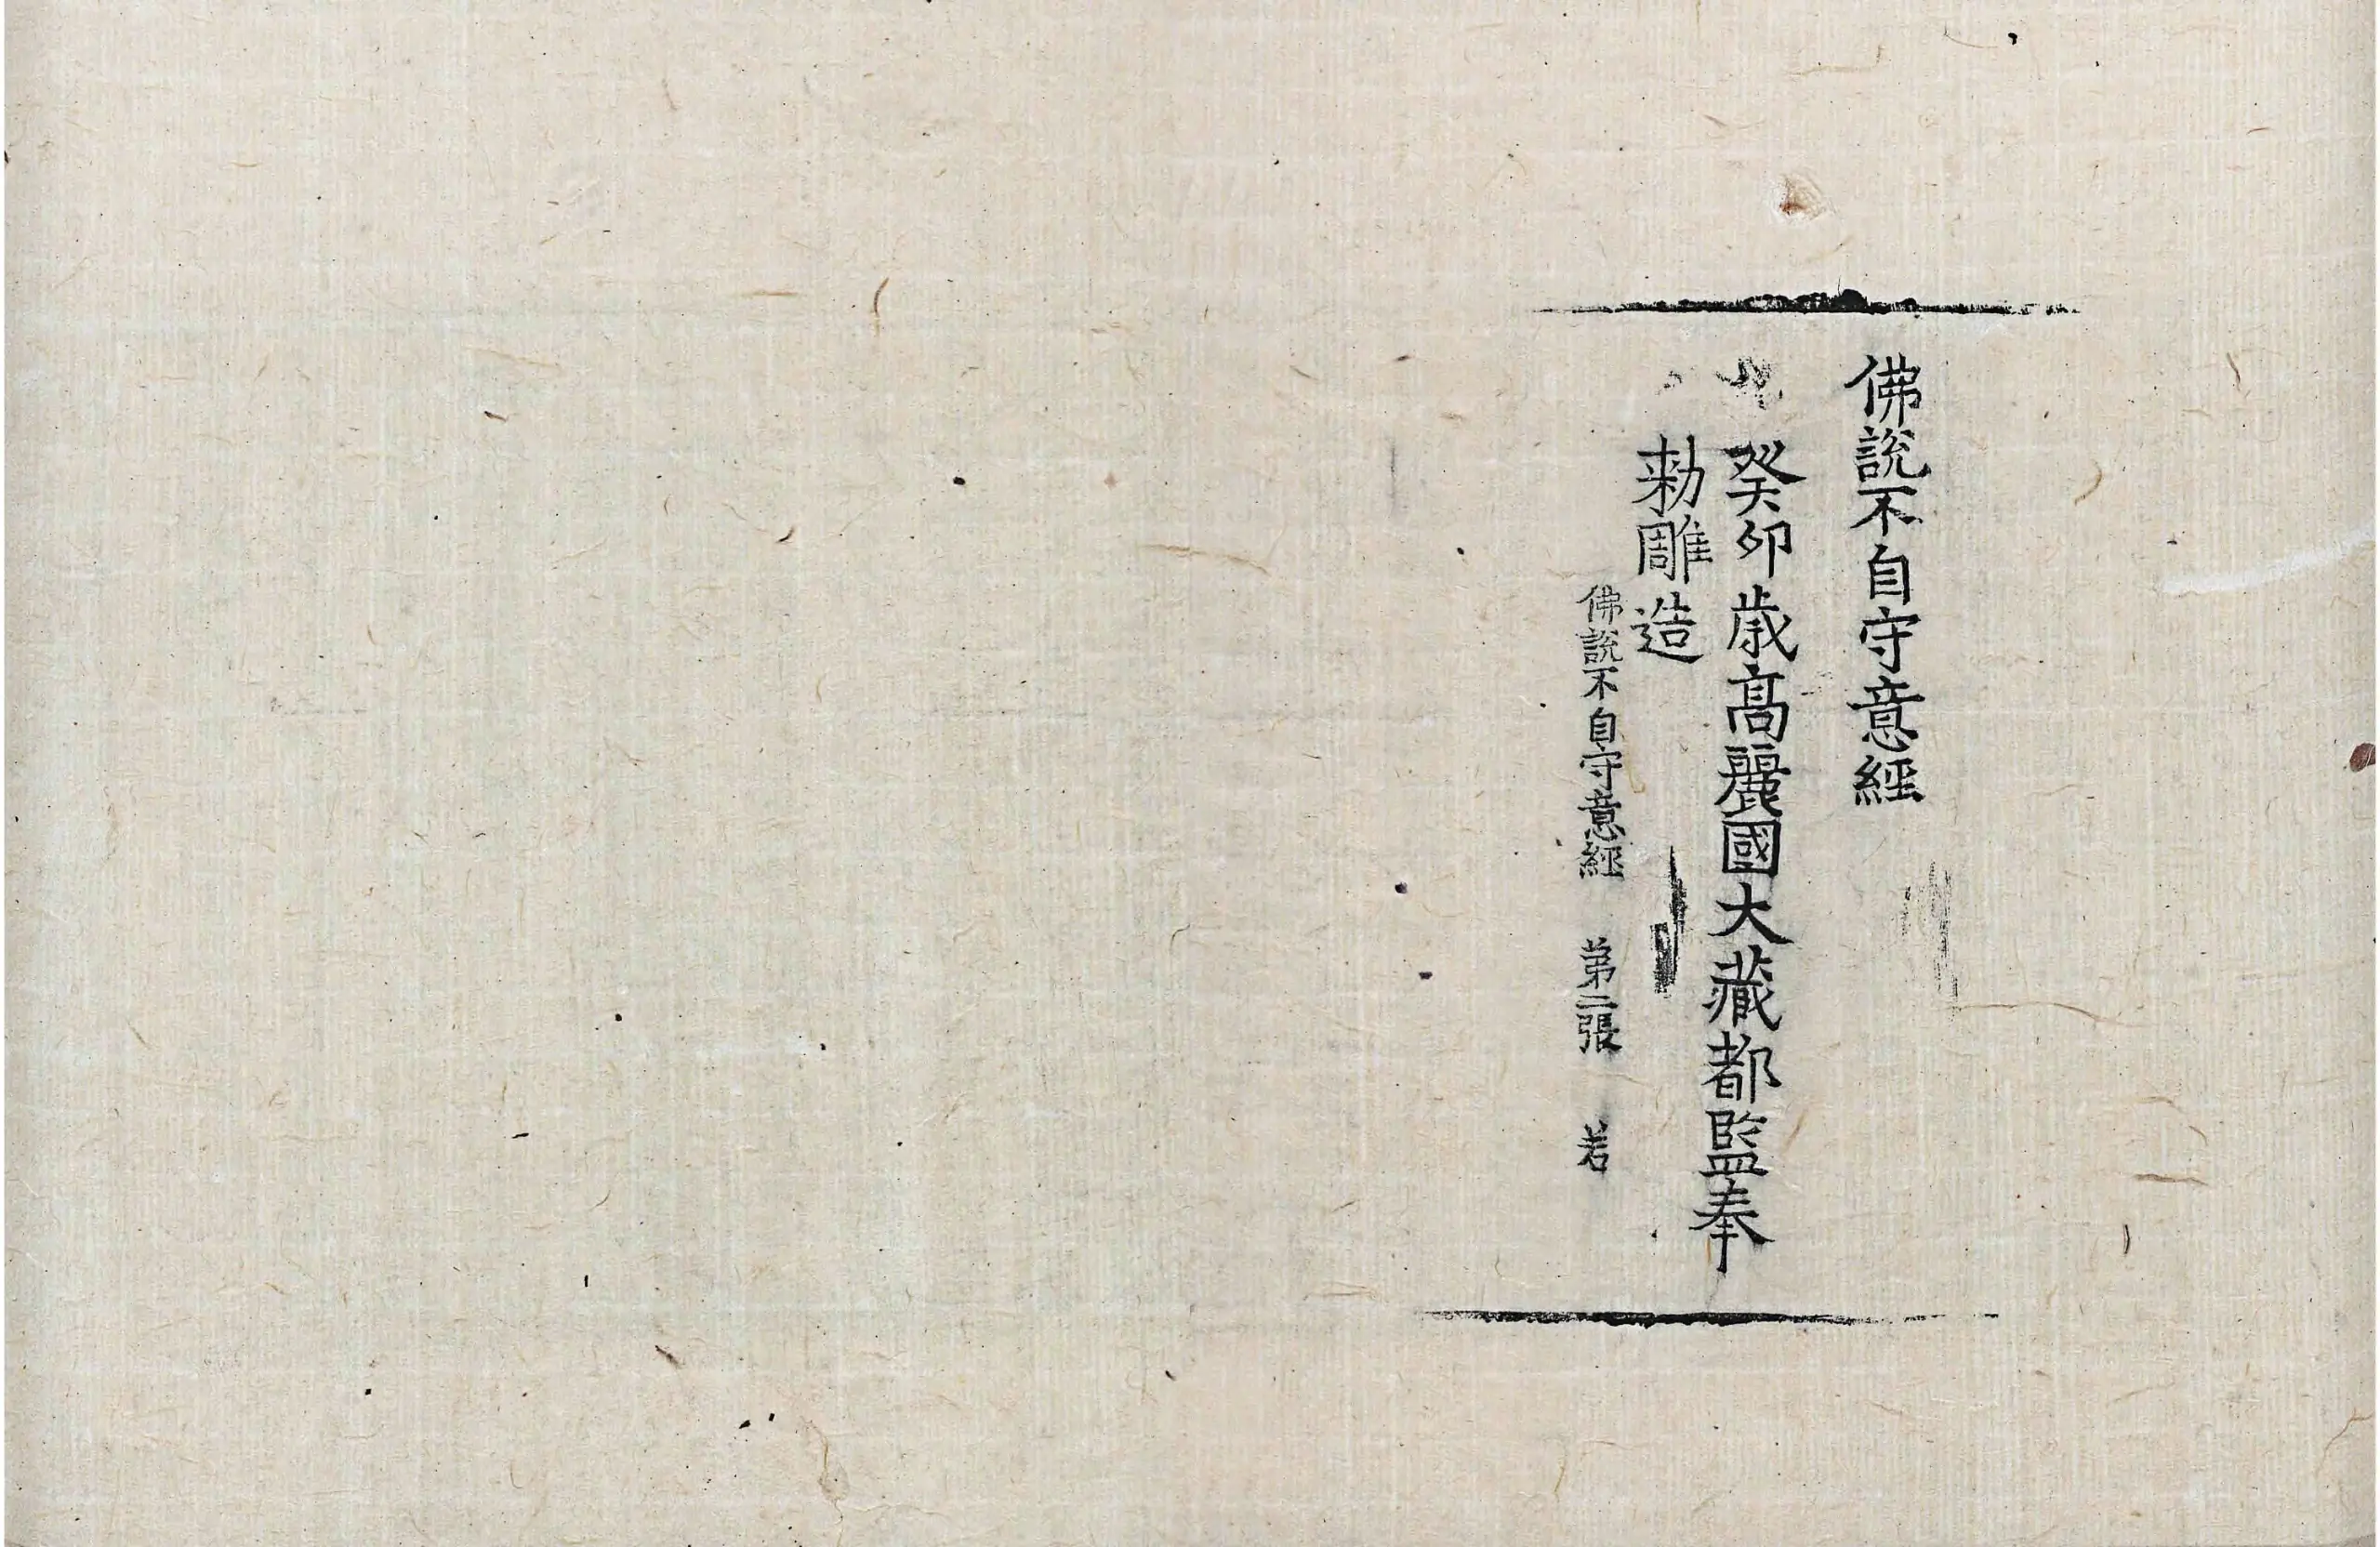 佛說不自守意經
癸卯歲高麗國大藏都監奉
勑雕造
佛說不自守意經 第二張 若